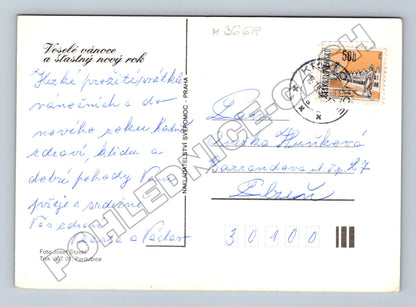 M 36618
Veselé vánoce
a šťastný nový rok
Hezké prožití svátků
vánočních a do
nového roku hodně
zdraví, klidu a
dobré pohody Vám
přeje a srdečně
Vás zdraví
a Václav
Foto Josef
Tisk VČT 01, Pardubice
NAKLADATELSTVÍ SVÉPOMOC - PRAHA
50h
ČESKOSLOVENSKO
Paní
Huňková
Barrandova ul čp 27
Plzeň
30100
POHLEDNICE-CZ